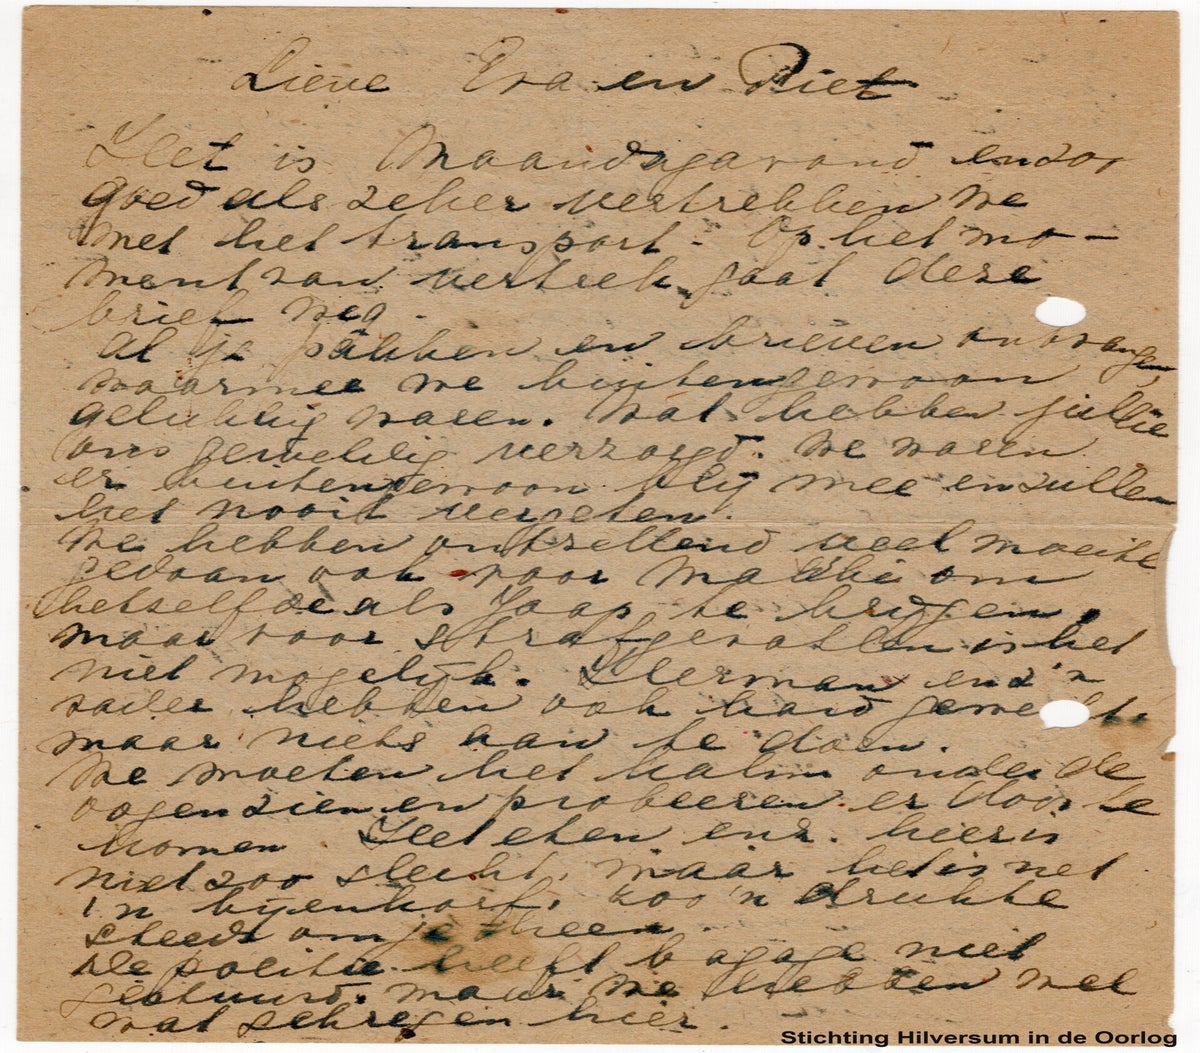 Lieve Eva en Piet
Het is Maandagavond en zoo
goed als zeker vertrekken we
met het transport. Op het mo-
ment van vertrek gaat deze
brief weg.
Al je pakken en brieven ontvangen,
waarmee we buitengewoon
gelukkig waren. Wat hebben jullie
ons geweldig verzorgd. We waren
er buitengewoon blij mee en zullen
het nooit vergeten.
We hebben ontzettend veel moeite
gedaan ook voor om
hetzelfde als Jaap te krijgen,
maar voor strafgevallen is het
niet mogelijk. Herman en z'n
vader hebben ook hard gewerkt
maar niets aan te doen.
We moeten het kalm onder de
oogen zien en probeeren er door te
komen Het eten enz. hier is
niet zoo slecht, maar het is net
'n bijenkorf, zoo'n drukte
steeds om je heen.
De politie heeft bagage niet
gestuurd. maar we hebben wel
wat gekregen hier.
Stichting Hilversum in de Oorlog